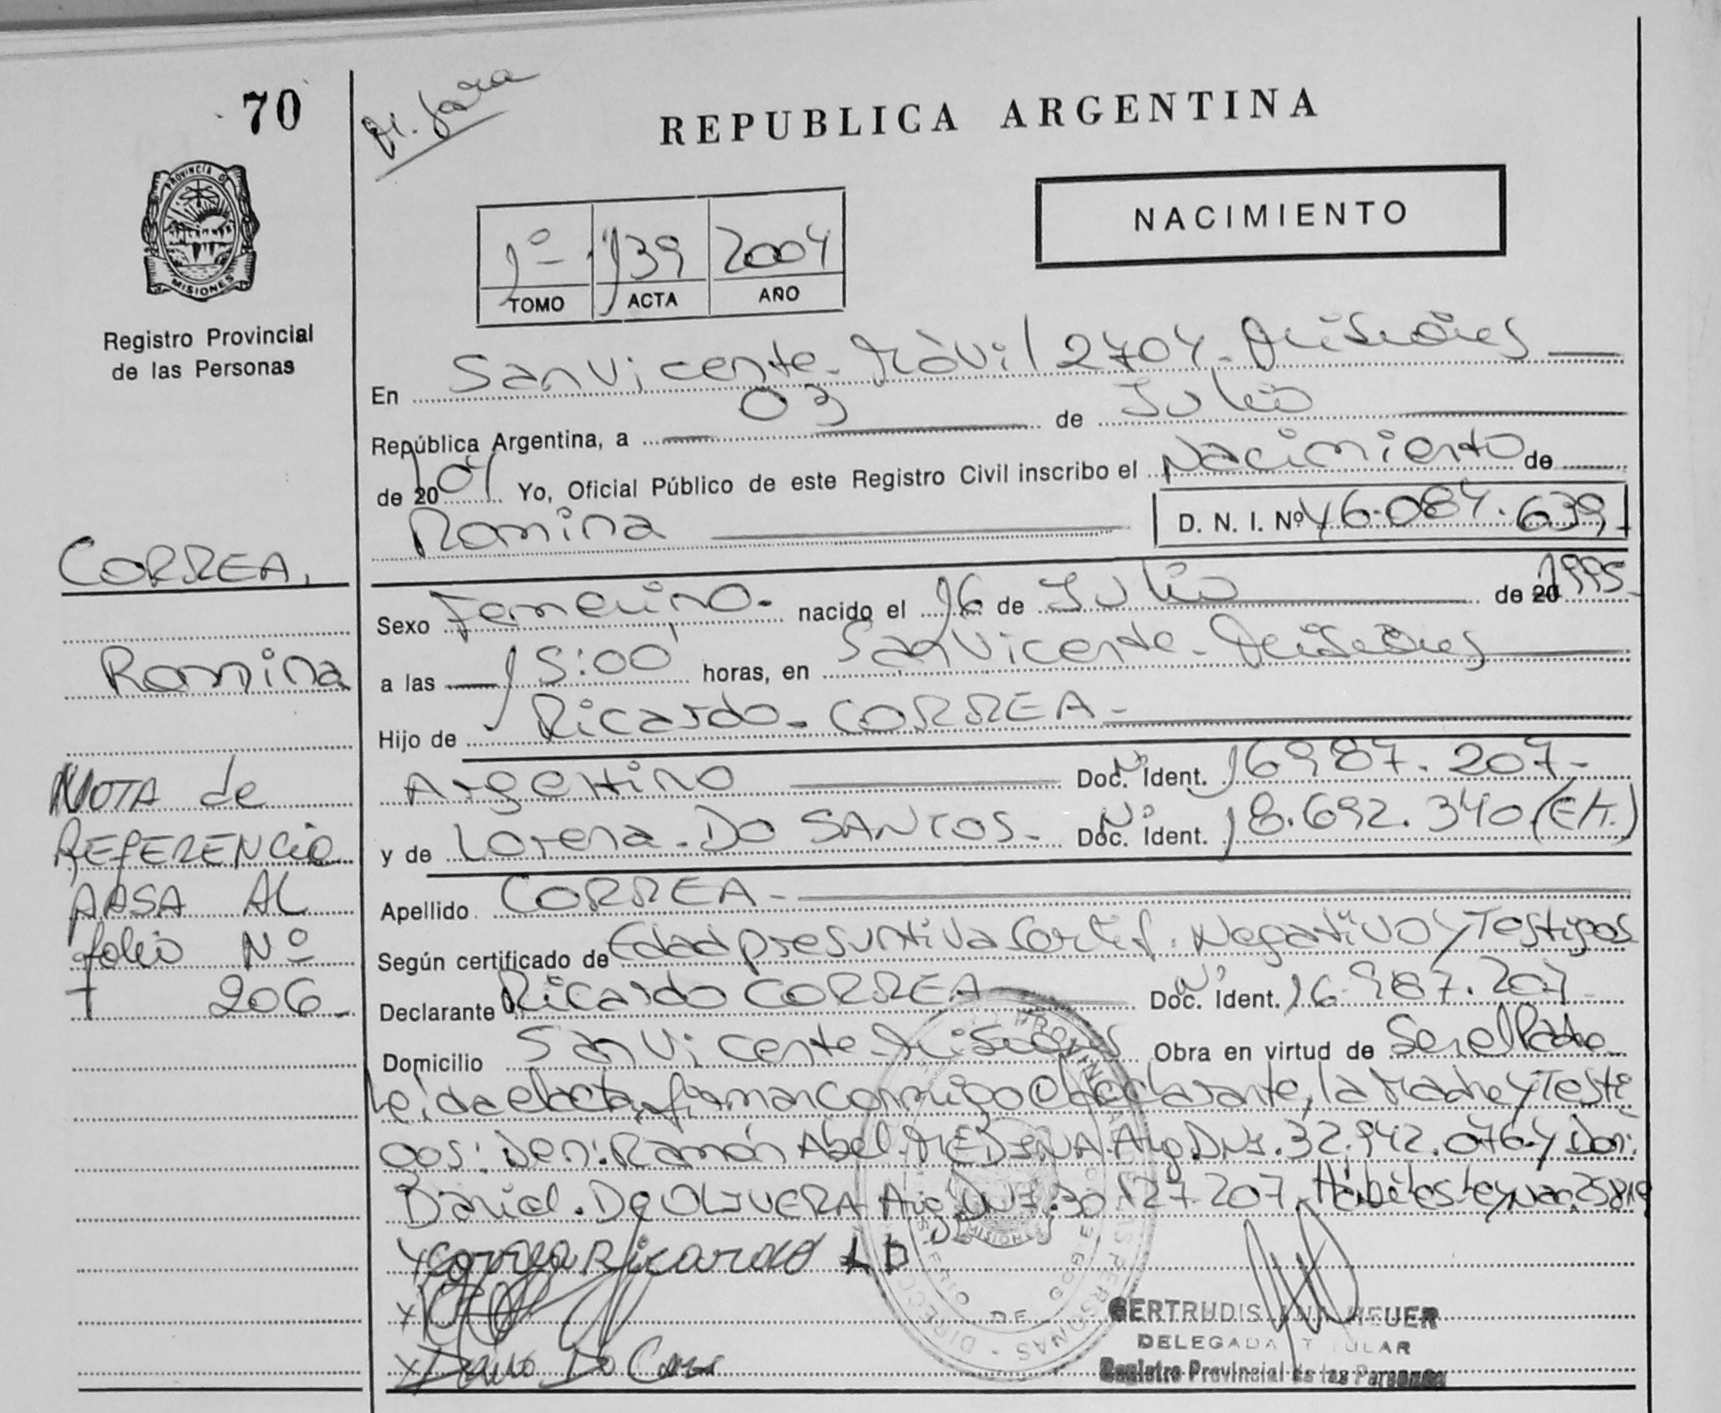 70
REPUBLICA ARGENTINA
PROVINCIA DE
MISIONES
NACIMIENTO
1º 139 2004
TOMO ACTA AÑO
Registro Provincial
de las Personas
En San Vicente - Móvil 2704 - Misiones
República Argentina, a 03 de Julio
de 2004 Yo, Oficial Público de este Registro Civil inscribo el Nacimiento de
Romina D. N. I. Nº 46.084.639
CORREA,
Romina
Sexo Femenino - nacido el 16 de Julio de 20 1995
a las 15:00 horas, en San Vicente - Misiones
Hijo de Ricardo - CORREA -
Argentino Doc. Ident. Nº 16.987.207 -
y de Lorena - DO SANTOS - Doc. Ident. Nº 18.692.340 (Ext.)
Apellido CORREA -
Según certificado de Edad presuntiva Certif. Negativo y Testigos
Declarante Ricardo CORREA Doc. Ident. Nº 16.987.207
Domicilio San Vicente - Misiones Obra en virtud de Ser el Padre
Leída el acta, firman conmigo el declarante, la Madre y Testi
gos: Don: Ramón Abel MEDINA Arg. DNI. 32.942.076 y Don:
Daniel - De OLIVERA Arg. DNI. 30.127.207 Hábiles Ley Nac.
NOTA de
REFERENCIA
PASA AL
folio Nº
206 -
Correa Ricardo L D
GERTRUDIS ANA HEUER
DELEGADA TITULAR
Registro Provincial de las Personas